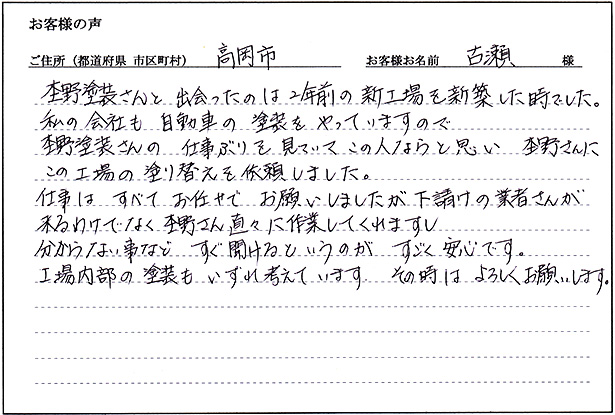 お客様の声
ご住所（都道府県 市区町村） 高岡市 お客様お名前 古瀬 様
杢野塗装さんと出会ったのは2年前の新工場を新築した時でした。
私の会社も自動車の塗装をやっていますので
杢野塗装さんの仕事ぶりを見ていてこの人ならと思い 杢野さんに
この工場の塗り替えを依頼しました。
仕事はすべてお任せでお願いしましたが下請けの業者さんが
来るわけでなく杢野さん直々に作業してくれますし
分からない事などすぐ聞けるというのがすごく安心です。
工場内部の塗装もいずれ考えています その時はよろしくお願いします。